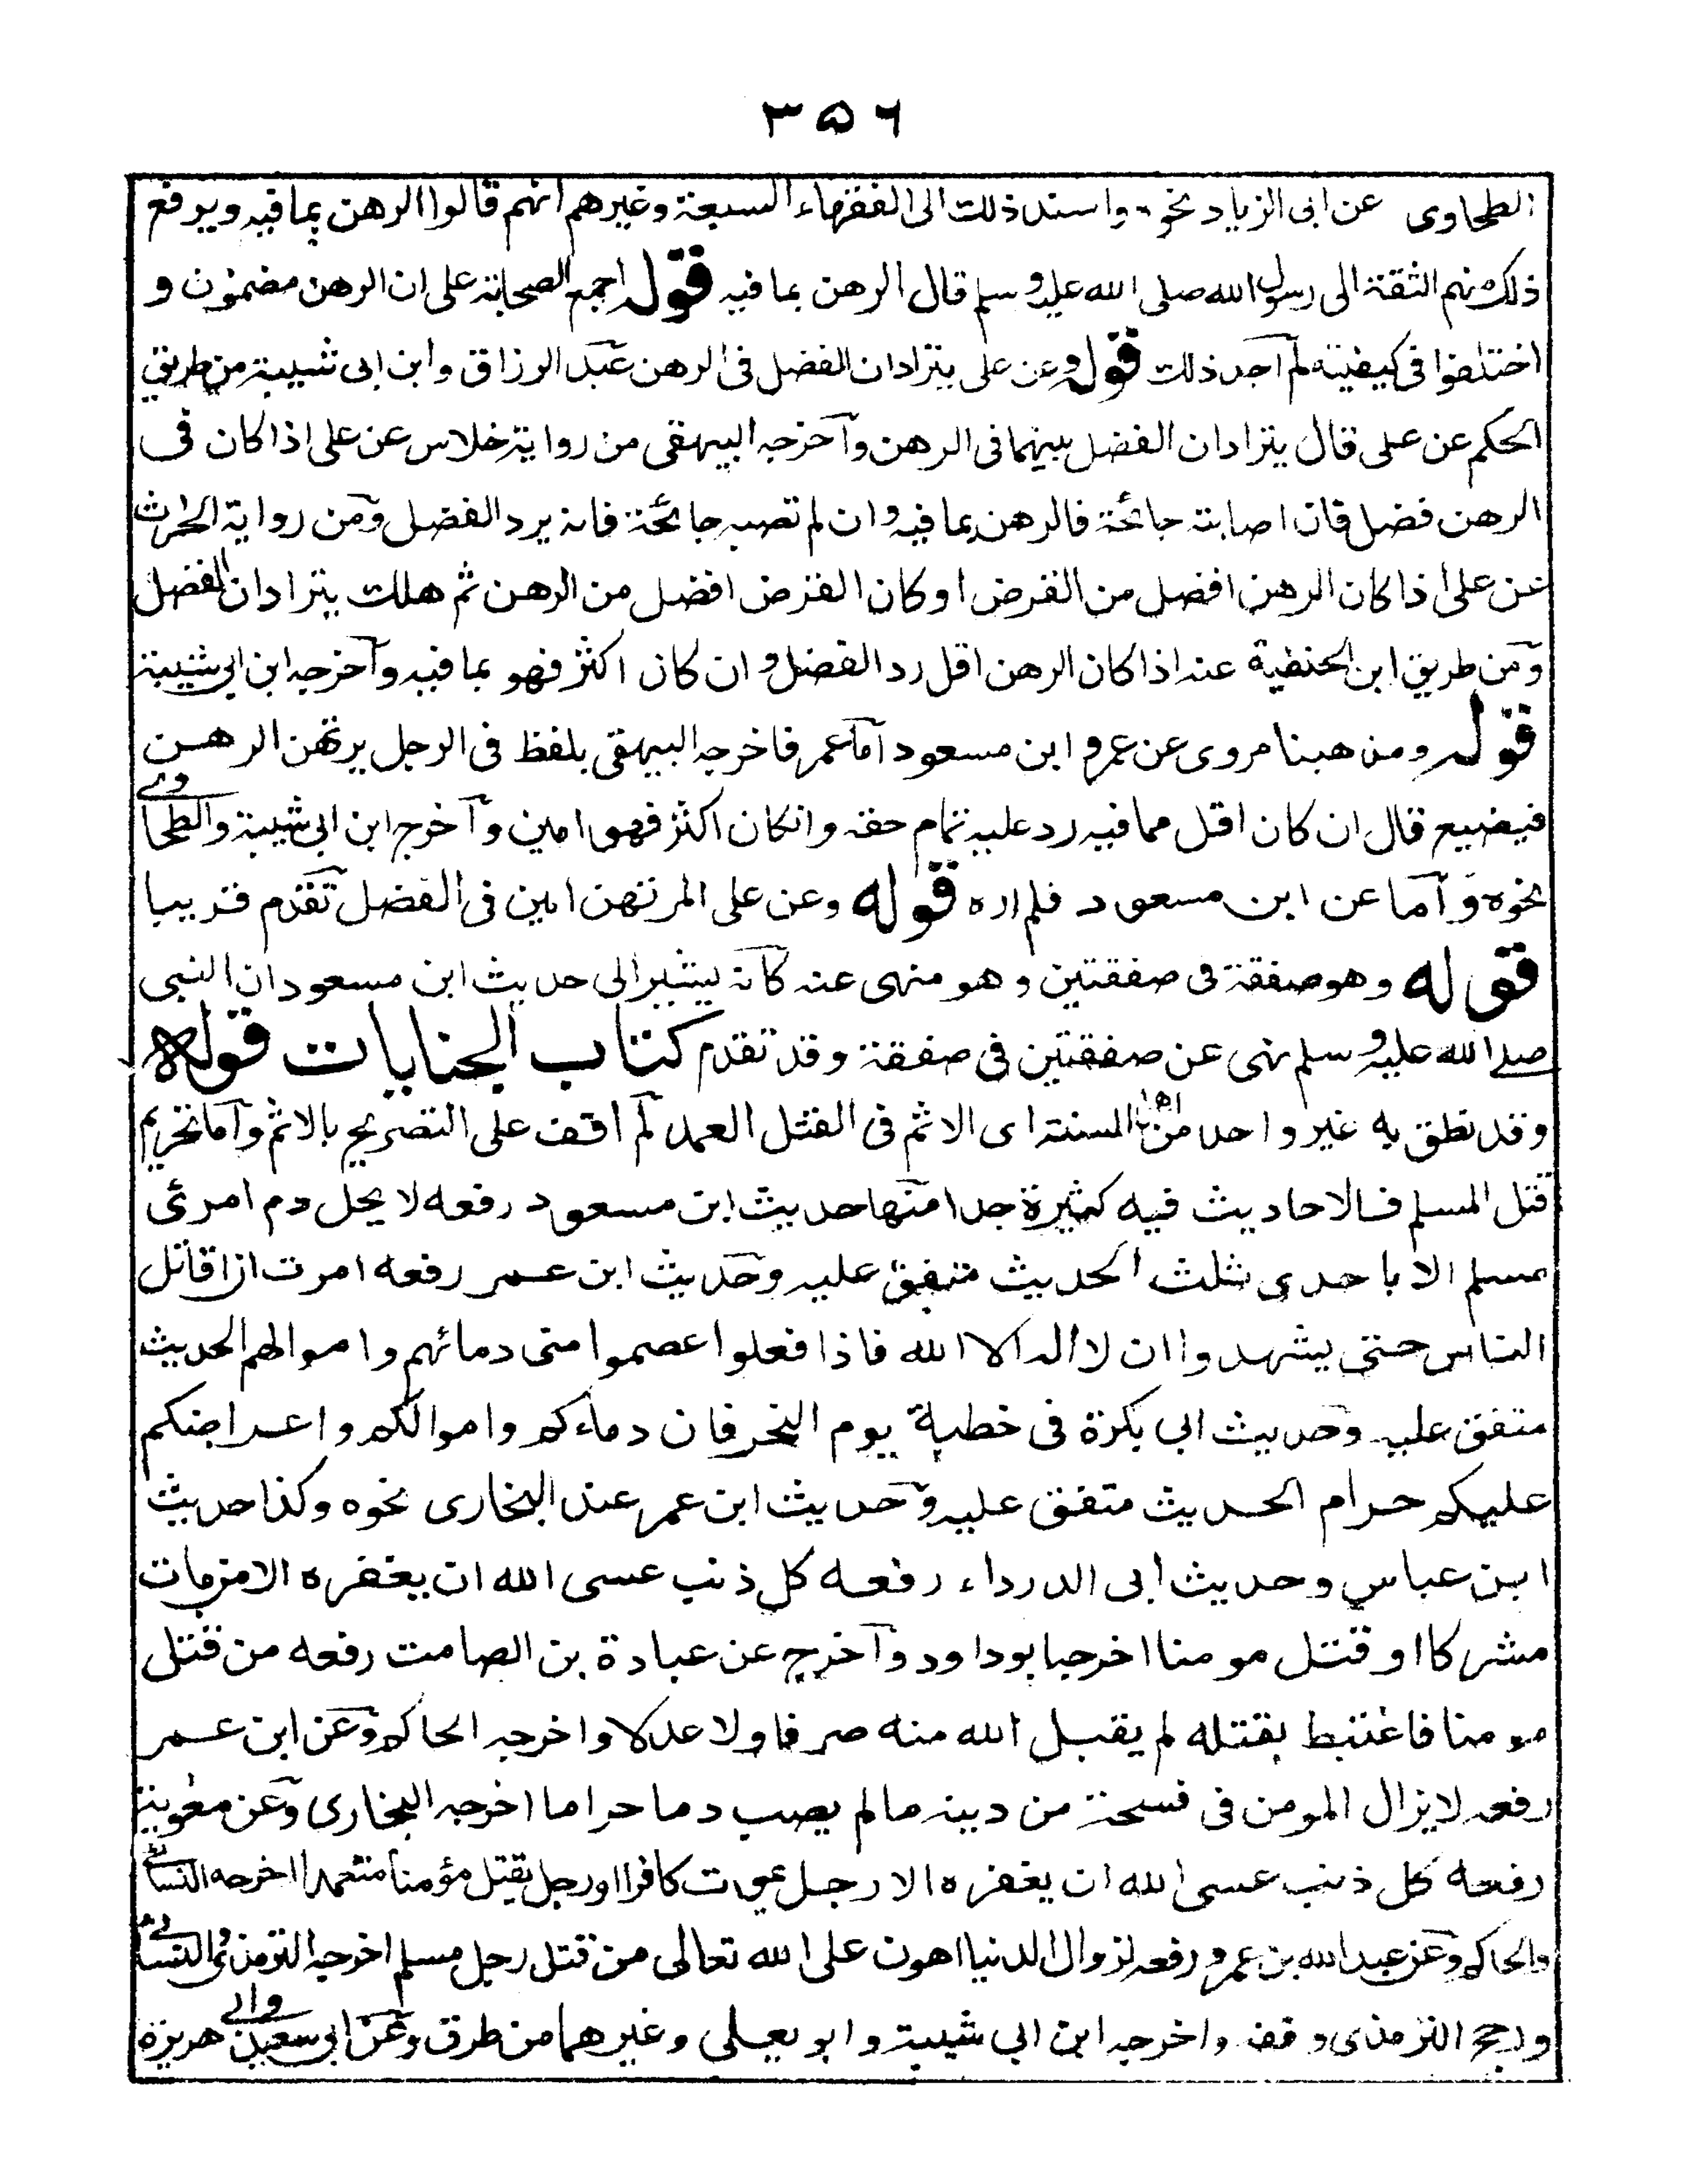 ٣٥٦
الطحاوى عن ابى الزياد نحوه واسند ذلك الى الفقهاء السبعة وغيرهم انهم قالوا الرهن بما فيه ويرفع
ذلك منهم الثقة الى رسول الله صلى الله عليه وسلم قال الرهن بما فيه قوله اجمع الصحابة على ان الرهن مضمون و
اختلفوا فى كيفيته لم اجد ذلك قوله وعن على يترادان الفضل فى الرهن عبد الرزاق وابن ابى شيبة من طريق
الحكم عن على قال يترادان الفضل بينهما فى الرهن وآخرجه البيهقى من رواية خلاس عن على اذا كان فى
الرهن فضل فان اصابته جائحة فالرهن بما فيه وان لم تصبه جائحة فانه يرد الفضل ومن رواية الحرث
عن على اذا كان الرهن افضل من القرض او كان القرض افضل من الرهن ثم هلك يترادان الفضل
ومن طريق ابن الحنفية عنه اذا كان الرهن اقل رد الفضل وان كان اكثر فهو بما فيه وآخرجه ابن ابى شيبة
قوله ومذهبنا مروى عن عمر و ابن مسعود آما عمر فاخرجه البيهقى بلفظ فى الرجل يرتهن الرهن
فيضيع قال ان كان اقل مما فيه رد عليه تمام حقه وانكان اكثر فهو امين وآخرج ابن ابى شيبة والطحاوى
نحوه وآما عن ابن مسعود فلم اره قوله وعن على المرتهن امين فى الفضل تقدم قريبا
قوله وهو صفقة فى صفقتين وهو منهى عنه كانه يشير الى حديث ابن مسعود ان النبى
صلى الله عليه وسلم نهى عن صفقتين فى صفقة وقد تقدم كتاب الجنايات قوله
وقد نطق به غير واحد من اهل السنة اى الاثم فى القتل العمد لم اقف على التصريح بالاثم وآما تحريم
قتل المسلم فالاحاديث فيه كثيرة جدا منها حديث ابن مسعود رفعه لا يحل دم امرئ
مسلم الا باحدى ثلث الحديث متفق عليه وحديث ابن عمر رفعه امرت ان اقاتل
الناس حتى يشهدوا ان لا اله الا الله فاذا فعلوا عصموا منى دمائهم واموالهم الحديث
متفق عليه وحديث ابى بكرة فى خطبة يوم النحر فان دماءكم واموالكم واعراضكم
عليكم حرام الحديث متفق عليه وحديث ابن عمر عند البخارى نحوه وكذا حديث
ابن عباس وحديث ابى الدرداء رفعه كل ذنب عسى الله ان يغفره الا من مات
مشركا او قتل مومنا اخرجه ابوداود وآخرج عن عبادة بن الصامت رفعه من قتل
مومنا فاغتبط بقتله لم يقبل الله منه صرفا ولا عدلا واخرجه الحاكم وعن ابن عمر
رفعه لا يزال المومن فى فسحة من دينه ما لم يصب دما حراما اخرجه البخارى وعن معوية
رفعه كل ذنب عسى الله ان يغفره الا رجل يموت كافرا او رجل يقتل مؤمنا متعمدا اخرجه النسائى
والحاكم وعن عبد الله بن عمرو رفعه لزوال الدنيا اهون على الله تعالى من قتل رجل مسلم اخرجه الترمذى والنسائى
ورجح الترمذى وقفه واخرجه ابن ابى شيبة وابو يعلى وغيرهما من طرق وعن ابى سعيد وابى هريرة